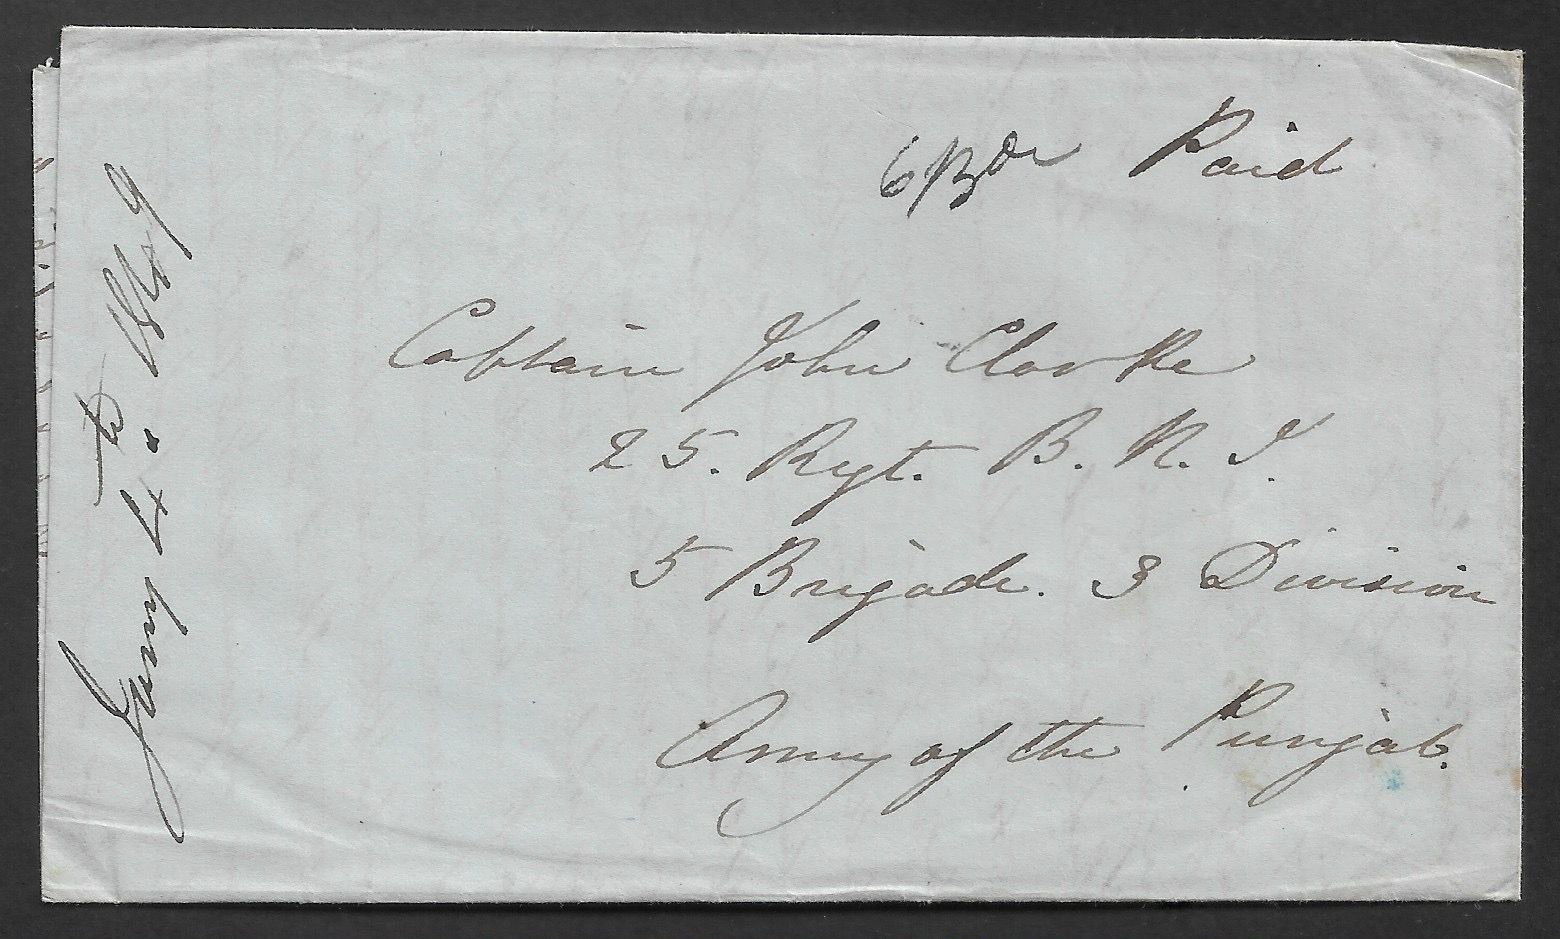 Paid
Captain John Clarke
25. Regt. B. N. I.
5 Brigade. 3 Division
Army of the Punjab.
Jany 4th